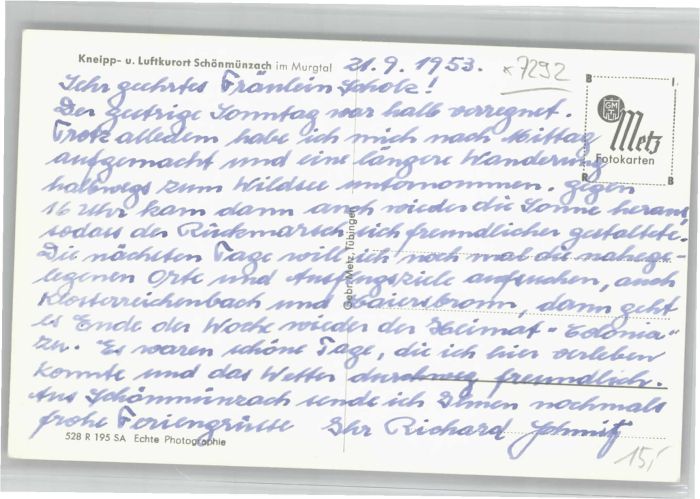 Kneipp- u. Luftkurort Schönmünzach im Murgtal 21.9.1953. x7292
Sehr geehrtes Fräulein Scholz!
Der gestrige Sonntag war halb verregnet.
Trotz alledem habe ich mich nach Mittag
aufgemacht und eine längere Wanderung
halbwegs zum Wildsee unternommen. Gegen
16 Uhr kam dann auch wieder die Sonne heraus,
sodass der Rückmarsch sich freundlicher gestaltete.
Die nächsten Tage will ich noch mal die nahege-
legenen Orte und Ausflugsziele aufsuchen, auch
Klosterreichenbach und Baiersbronn, dann geht
es Ende der Woche wieder der Heimat - "Colonia"
zu. Es waren schöne Tage, die ich hier verleben
konnte und das Wetter durchweg freundlich.
Aus Schönmünzach sende ich Ihnen nochmals
frohe Feriengrüsse Ihr Richard Schmitz
528 R 195 SA Echte Photographie
Gebr. Metz, Tübingen
B I
GM
T
Metz
Fotokarten
R B
15,-